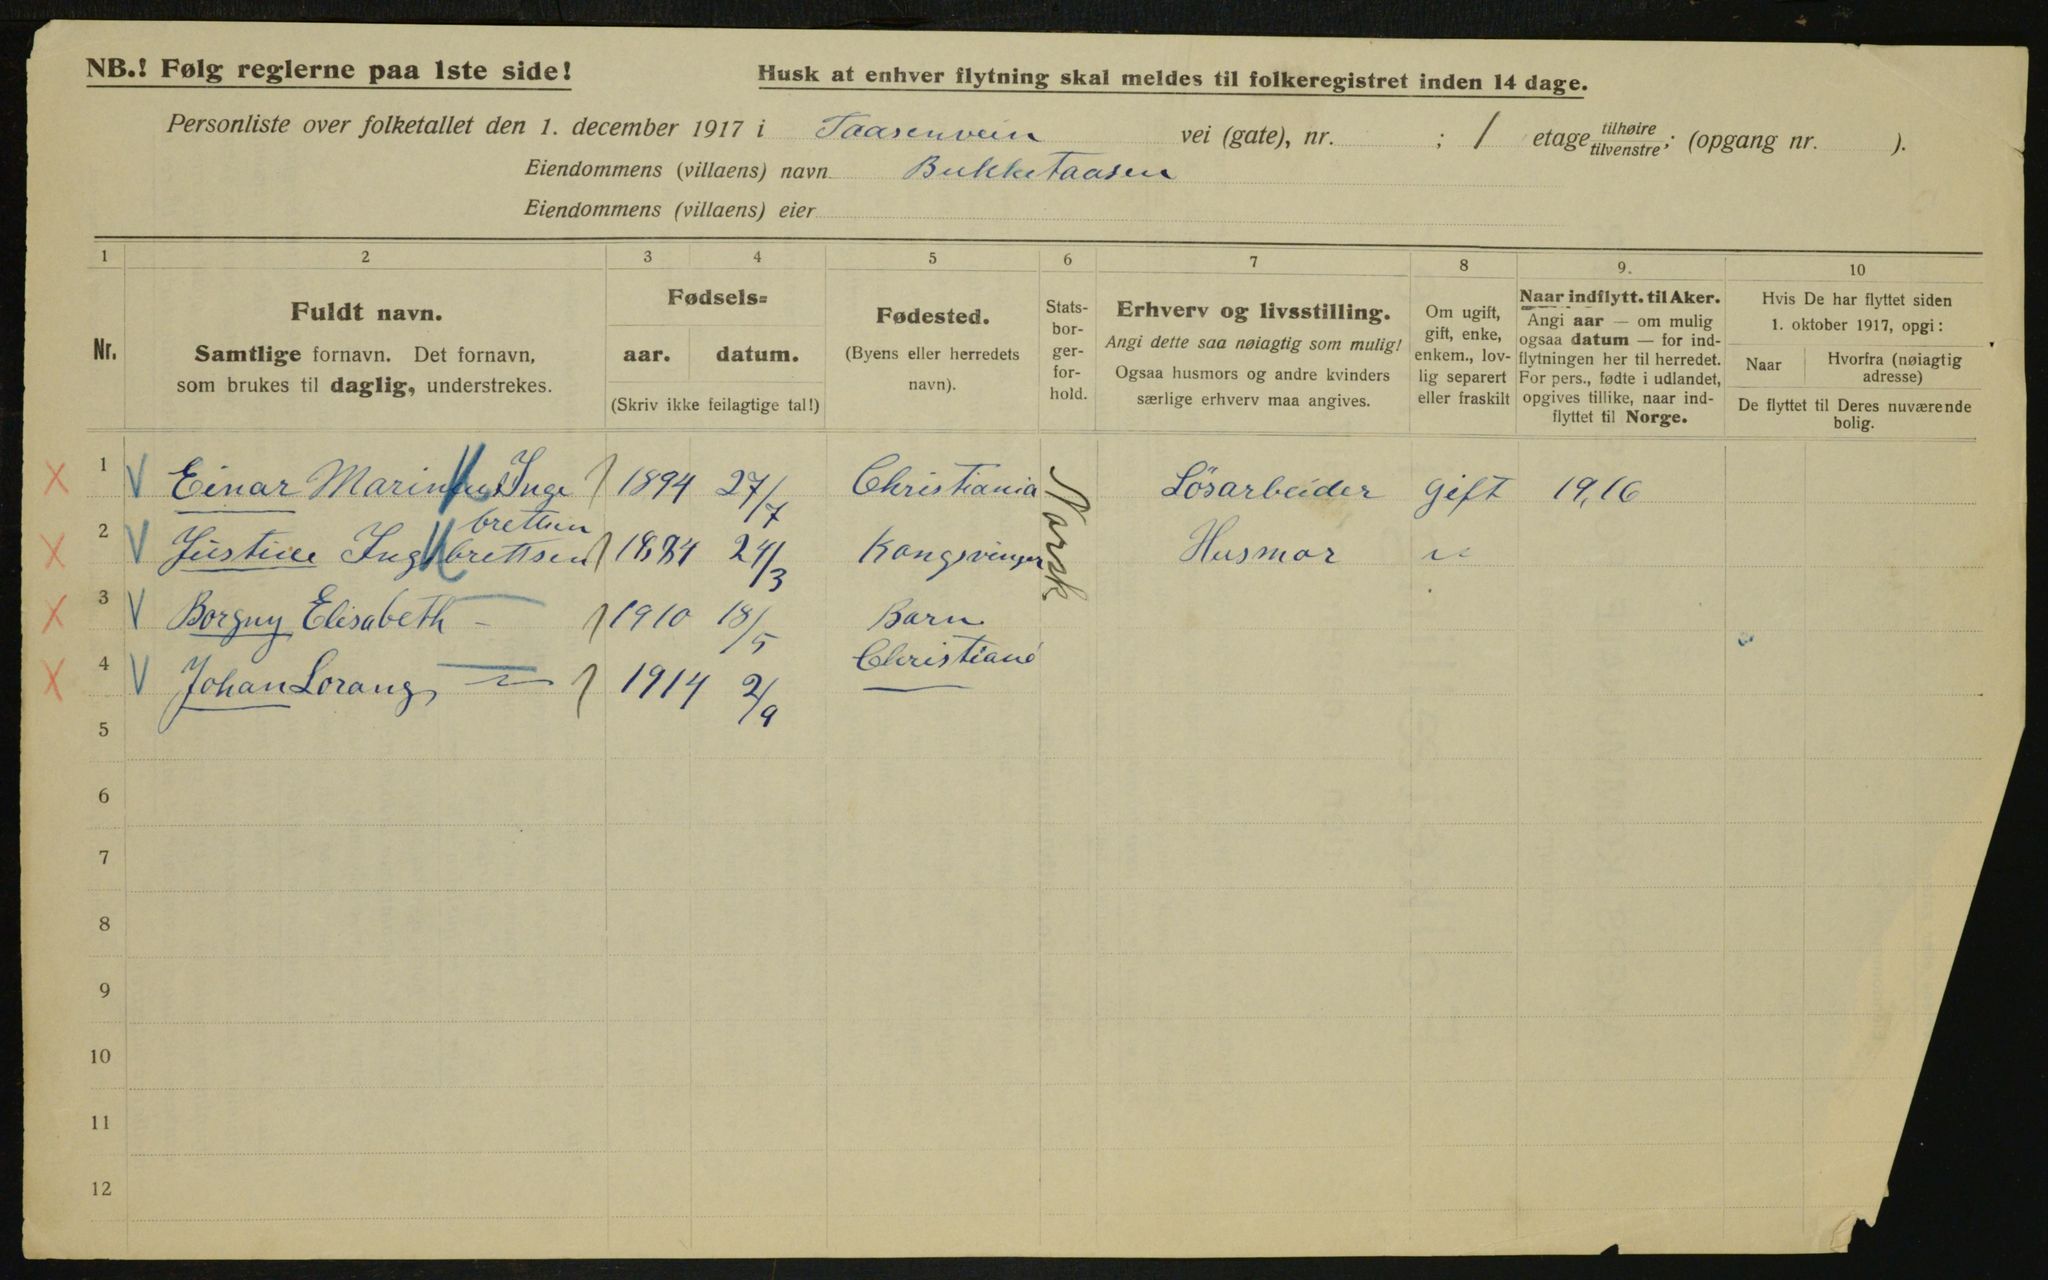 NB.! Følg reglerne paa 1ste side!
Husk at enhver flytning skal meldes til folkeregistret inden 14 dage.
Personliste over folketallet den 1. december 1917 i Taasenvein vei (gate), nr. ; 1 etage tilhøire tilvenstre; (opgang nr. ).
Eiendommens (villaens) navn Bukketaasen
Eiendommens (villaens) eier
1 2 3 4 5 6 7 8 9. 10
Nr.
Fuldt navn.
Samtlige fornavn. Det fornavn,
som brukes til daglig, understrekes.
Fødsels=
aar. datum.
(Skriv ikke feilagtige tal!)
Fødested.
(Byens eller herredets
navn).
Stats-
bor-
ger-
for-
hold.
Erhverv og livsstilling.
Angi dette saa nøiagtig som mulig!
Ogsaa husmors og andre kvinders
særlige erhverv maa angives.
Om ugift,
gift, enke,
enkem., lov-
lig separert
eller fraskilt
Naar indflytt. til Aker.
Angi aar — om mulig
ogsaa datum — for ind-
flytningen her til herredet.
For pers., fødte i udlandet,
opgives tillike, naar ind-
flyttet til Norge.
Hvis De har flyttet siden
1. oktober 1917, opgi:
Naar
Hvorfra (nøiagtig
adresse)
De flyttet til Deres nuværende
bolig.
1 Einar Marinius Inge 1894 27/7 Christiania Norsk Lösarbeider gift 19,16
brettsen
2 Justine Ingebrettsen 1884 24/3 Kongsvinger Husmor "
3 Borgny Elisabeth - 1910 18/5 Barn
4 Johan Lorang — 1914 2/9 Christiania
5
6
7
8
9
10
11
12